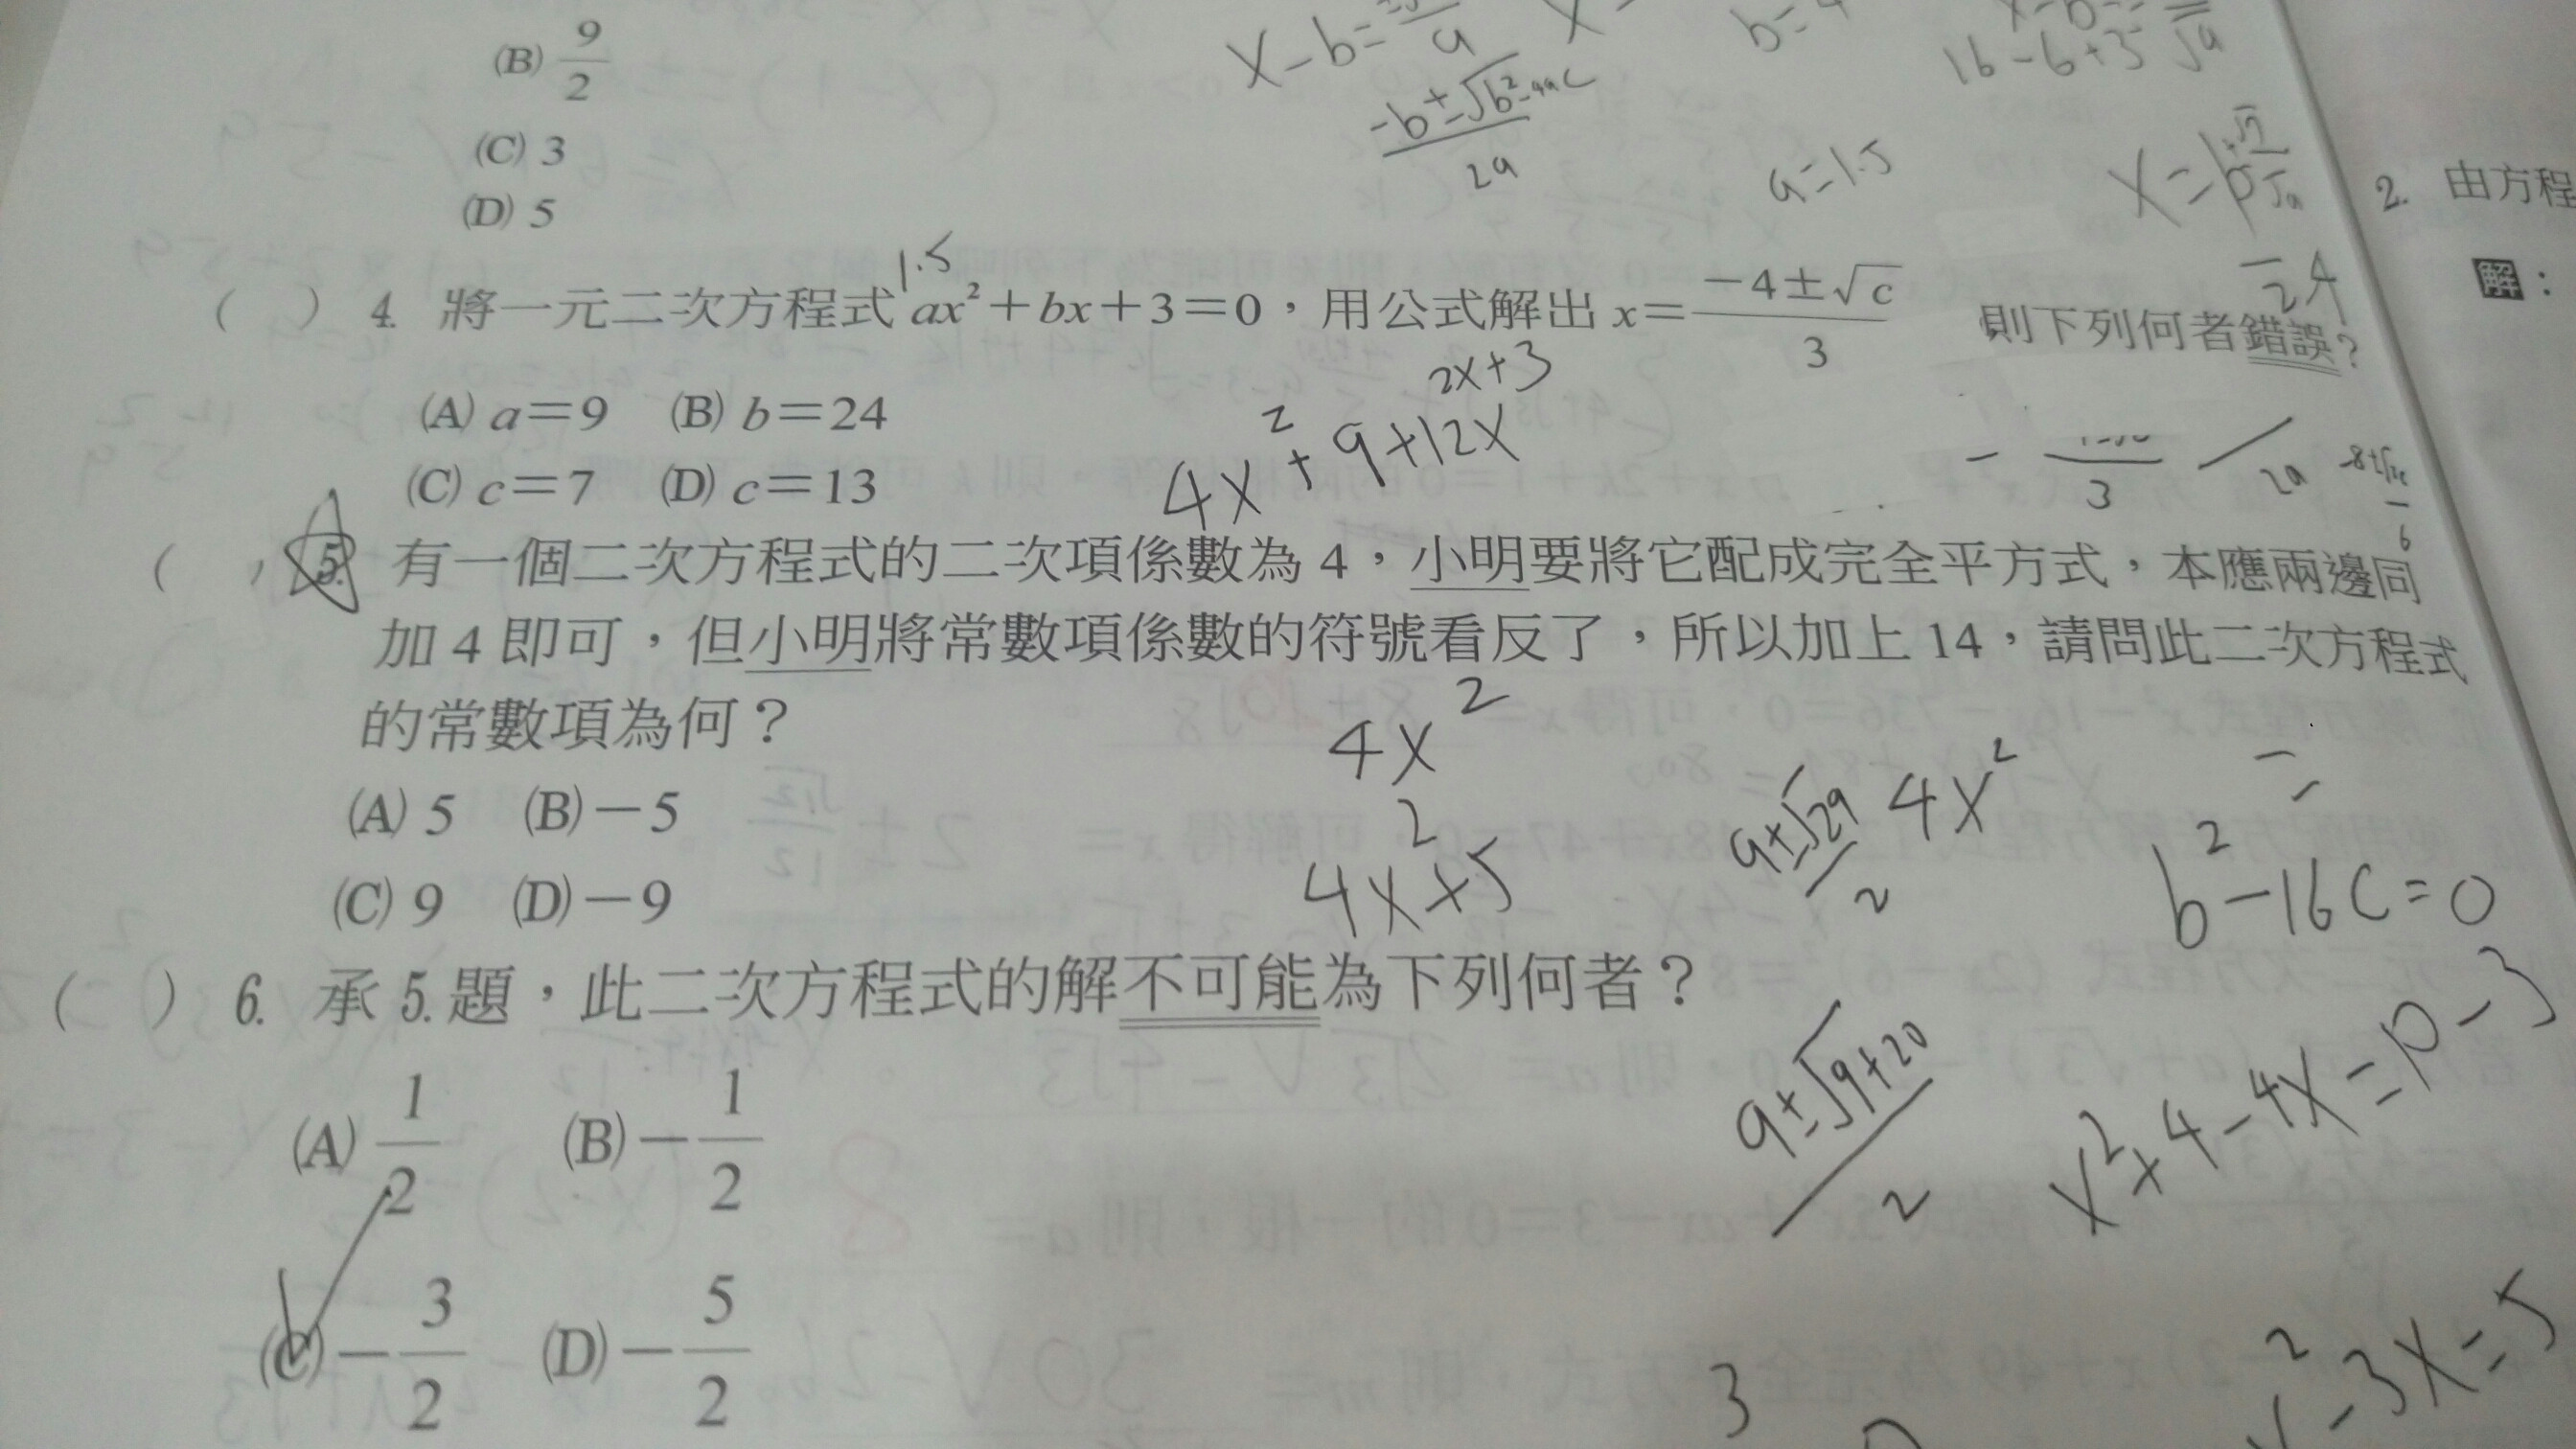 (B) 9/2
(C) 3
(D) 5
x-b=
-b±√b²-4ac / 2a
a=1.5
16-6+3
2. 由方程
解：
1.5
( ) 4. 將一元二次方程式 ax²+bx+3=0，用公式解出 x= -4±√c / 3 則下列何者錯誤?
(A) a=9 (B) b=24
(C) c=7 (D) c=13
2x+3
4x²+9+12x
( ) 5. 有一個二次方程式的二次項係數為 4，小明要將它配成完全平方式，本應兩邊同
加 4 即可，但小明將常數項係數的符號看反了，所以加上 14，請問此二次方程式
的常數項為何？
(A) 5 (B) -5
(C) 9 (D) -9
4x²
4x²+5
9±√29 / 2
4x²
b²-16c=0
( ) 6. 承 5. 題，此二次方程式的解不可能為下列何者？
(A) 1/2 (B) -1/2
(C) -3/2 (D) -5/2
9±√9+20 / 2
x²+4-4x=p-3
3
-3x=5